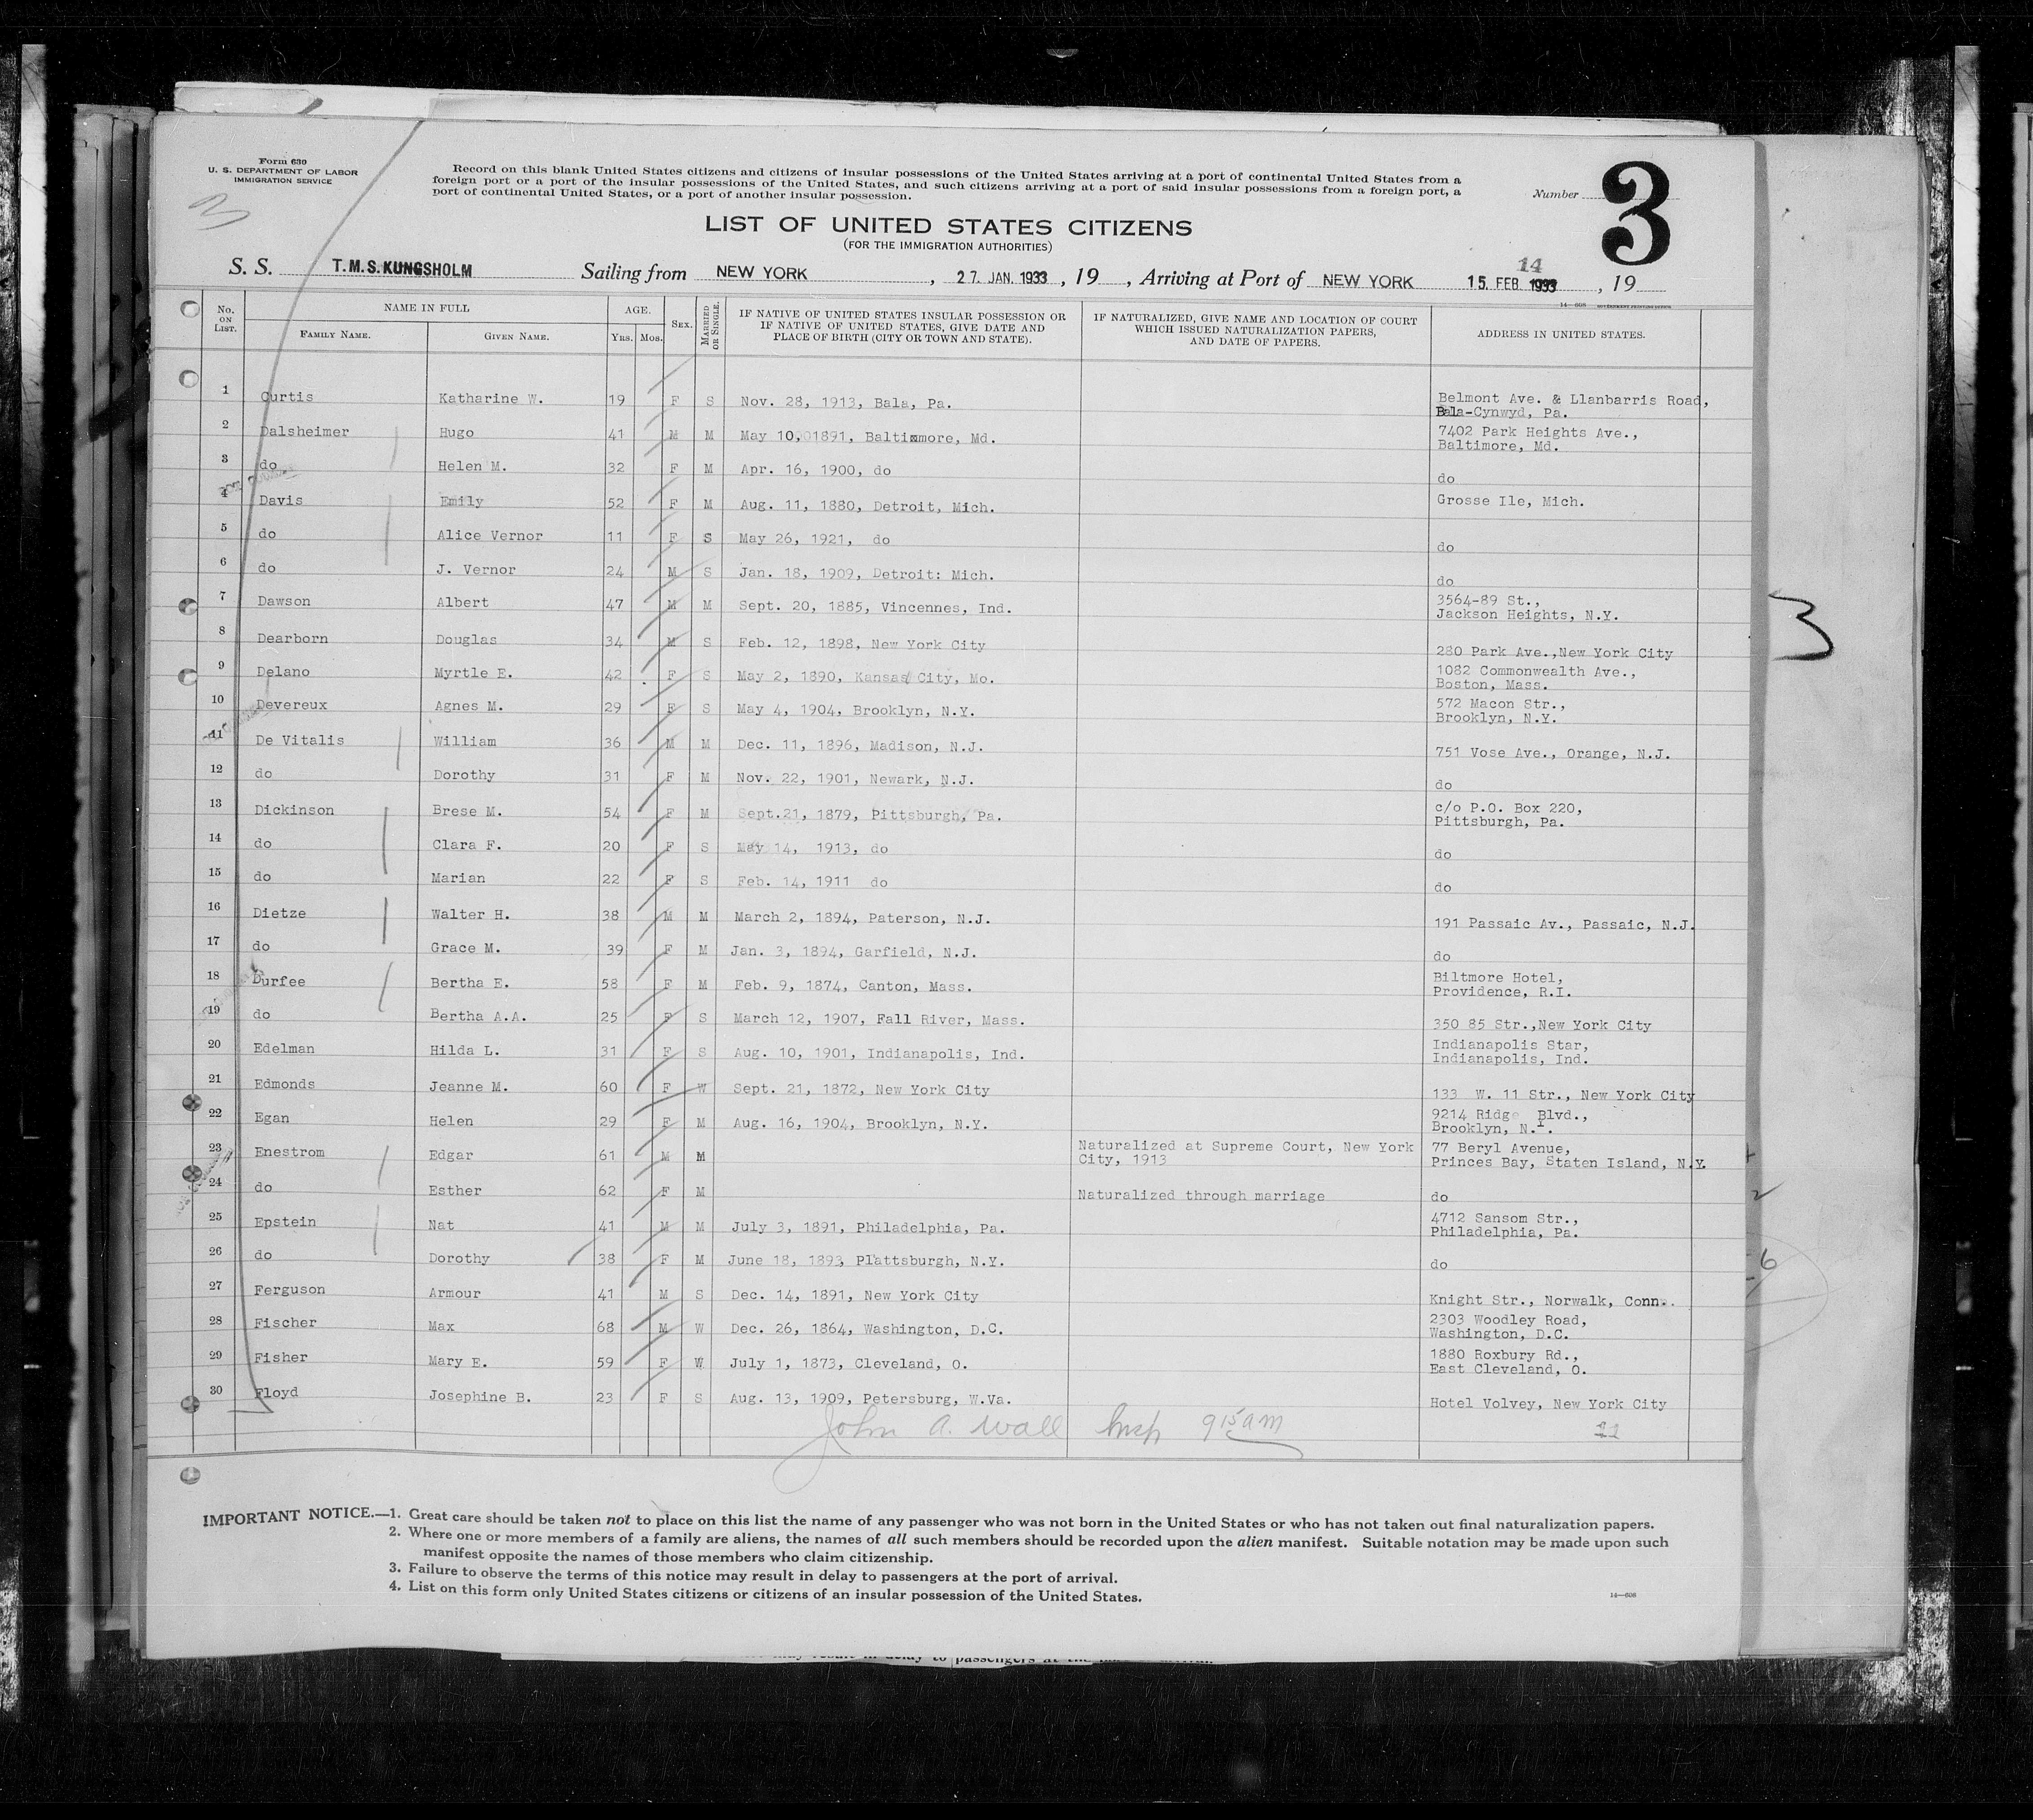 Form 630
U. S. DEPARTMENT OF LABOR
IMMIGRATION SERVICE
3
Record on this blank United States citizens and citizens of insular possessions of the United States arriving at a port of continental United States from a
foreign port or a port of the insular possessions of the United States, and such citizens arriving at a port of said insular possessions from a foreign port, a
port of continental United States, or a port of another insular possession.
Number 3
LIST OF UNITED STATES CITIZENS
(FOR THE IMMIGRATION AUTHORITIES)
14
S. S. T.M.S. KUNGSHOLM Sailing from NEW YORK, 27. JAN. 1933, 19 , Arriving at Port of NEW YORK 15. FEB 1933, 19
14—608 GOVERNMENT PRINTING OFFICE
No. ON LIST. NAME IN FULL FAMILY NAME. GIVEN NAME. AGE. Yrs. Mos. SEX. MARRIED OR SINGLE. IF NATIVE OF UNITED STATES INSULAR POSSESSION OR IF NATIVE OF UNITED STATES, GIVE DATE AND PLACE OF BIRTH (CITY OR TOWN AND STATE). IF NATURALIZED, GIVE NAME AND LOCATION OF COURT WHICH ISSUED NATURALIZATION PAPERS, AND DATE OF PAPERS. ADDRESS IN UNITED STATES.
1 Curtis Katharine W. 19 F S Nov. 28, 1913, Bala, Pa. Belmont Ave. & Llanbarris Road,
Bala-Cynwyd, Pa.
2 Dalsheimer Hugo 41 M M May 10, 1891, Baltimore, Md. 7402 Park Heights Ave.,
Baltimore, Md.
3 do Helen M. 32 F M Apr. 16, 1900, do do
4 Davis Emily 52 F M Aug. 11, 1880, Detroit, Mich. Grosse Ile, Mich.
5 do Alice Vernor 11 F S May 26, 1921, do do
6 do J. Vernor 24 M S Jan. 18, 1909, Detroit: Mich. do
7 Dawson Albert 47 M M Sept. 20, 1885, Vincennes, Ind. 3564-89 St.,
Jackson Heights, N.Y.
8 Dearborn Douglas 34 M S Feb. 12, 1898, New York City 280 Park Ave.,New York City
9 Delano Myrtle E. 42 F S May 2, 1890, Kansas City, Mo. 1082 Commonwealth Ave.,
Boston, Mass.
10 Devereux Agnes M. 29 F S May 4, 1904, Brooklyn, N.Y. 572 Macon Str.,
Brooklyn, N.Y.
11 De Vitalis William 36 M M Dec. 11, 1896, Madison, N.J. 751 Vose Ave., Orange, N.J.
12 do Dorothy 31 F M Nov. 22, 1901, Newark, N.J. do
13 Dickinson Brese M. 54 F M Sept.21, 1879, Pittsburgh, Pa. c/o P.O. Box 220,
Pittsburgh, Pa.
14 do Clara F. 20 F S May 14, 1913, do do
15 do Marian 22 F S Feb. 14, 1911 do do
16 Dietze Walter H. 38 M M March 2, 1894, Paterson, N.J. 191 Passaic Av., Passaic, N.J.
17 do Grace M. 39 F M Jan. 3, 1894, Garfield, N.J. do
18 Durfee Bertha E. 58 F M Feb. 9, 1874, Canton, Mass. Biltmore Hotel,
Providence, R.I.
19 do Bertha A.A. 25 F S March 12, 1907, Fall River, Mass. 350 85 Str.,New York City
20 Edelman Hilda L. 31 F S Aug. 10, 1901, Indianapolis, Ind. Indianapolis Star,
Indianapolis, Ind.
21 Edmonds Jeanne M. 60 F W Sept. 21, 1872, New York City 133 W. 11 Str., New York City
22 Egan Helen 29 F M Aug. 16, 1904, Brooklyn, N.Y. 9214 Ridge Blvd.,
Brooklyn, N.Y.
23 Enestrom Edgar 61 M M Naturalized at Supreme Court, New York City, 1913 77 Beryl Avenue,
Princes Bay, Staten Island, N.Y.
24 do Esther 62 F M Naturalized through marriage do
25 Epstein Nat 41 M M July 3, 1891, Philadelphia, Pa. 4712 Sansom Str.,
Philadelphia, Pa.
26 do Dorothy 38 F M June 18, 1893, Plattsburgh, N.Y. do
27 Ferguson Armour 41 M S Dec. 14, 1891, New York City Knight Str., Norwalk, Conn..
28 Fischer Max 68 M W Dec. 26, 1864, Washington, D.C. 2303 Woodley Road,
Washington, D.C.
29 Fisher Mary E. 59 F W July 1, 1873, Cleveland, O. 1880 Roxbury Rd.,
East Cleveland, O.
30 Floyd Josephine B. 23 F S Aug. 13, 1909, Petersburg, W.Va. Hotel Volvey, New York City
John A. Wall Insp 9 15 am
3
6
IMPORTANT NOTICE.—1. Great care should be taken not to place on this list the name of any passenger who was not born in the United States or who has not taken out final naturalization papers.
2. Where one or more members of a family are aliens, the names of all such members should be recorded upon the alien manifest. Suitable notation may be made upon such
manifest opposite the names of those members who claim citizenship.
3. Failure to observe the terms of this notice may result in delay to passengers at the port of arrival.
4. List on this form only United States citizens or citizens of an insular possession of the United States.
14—608